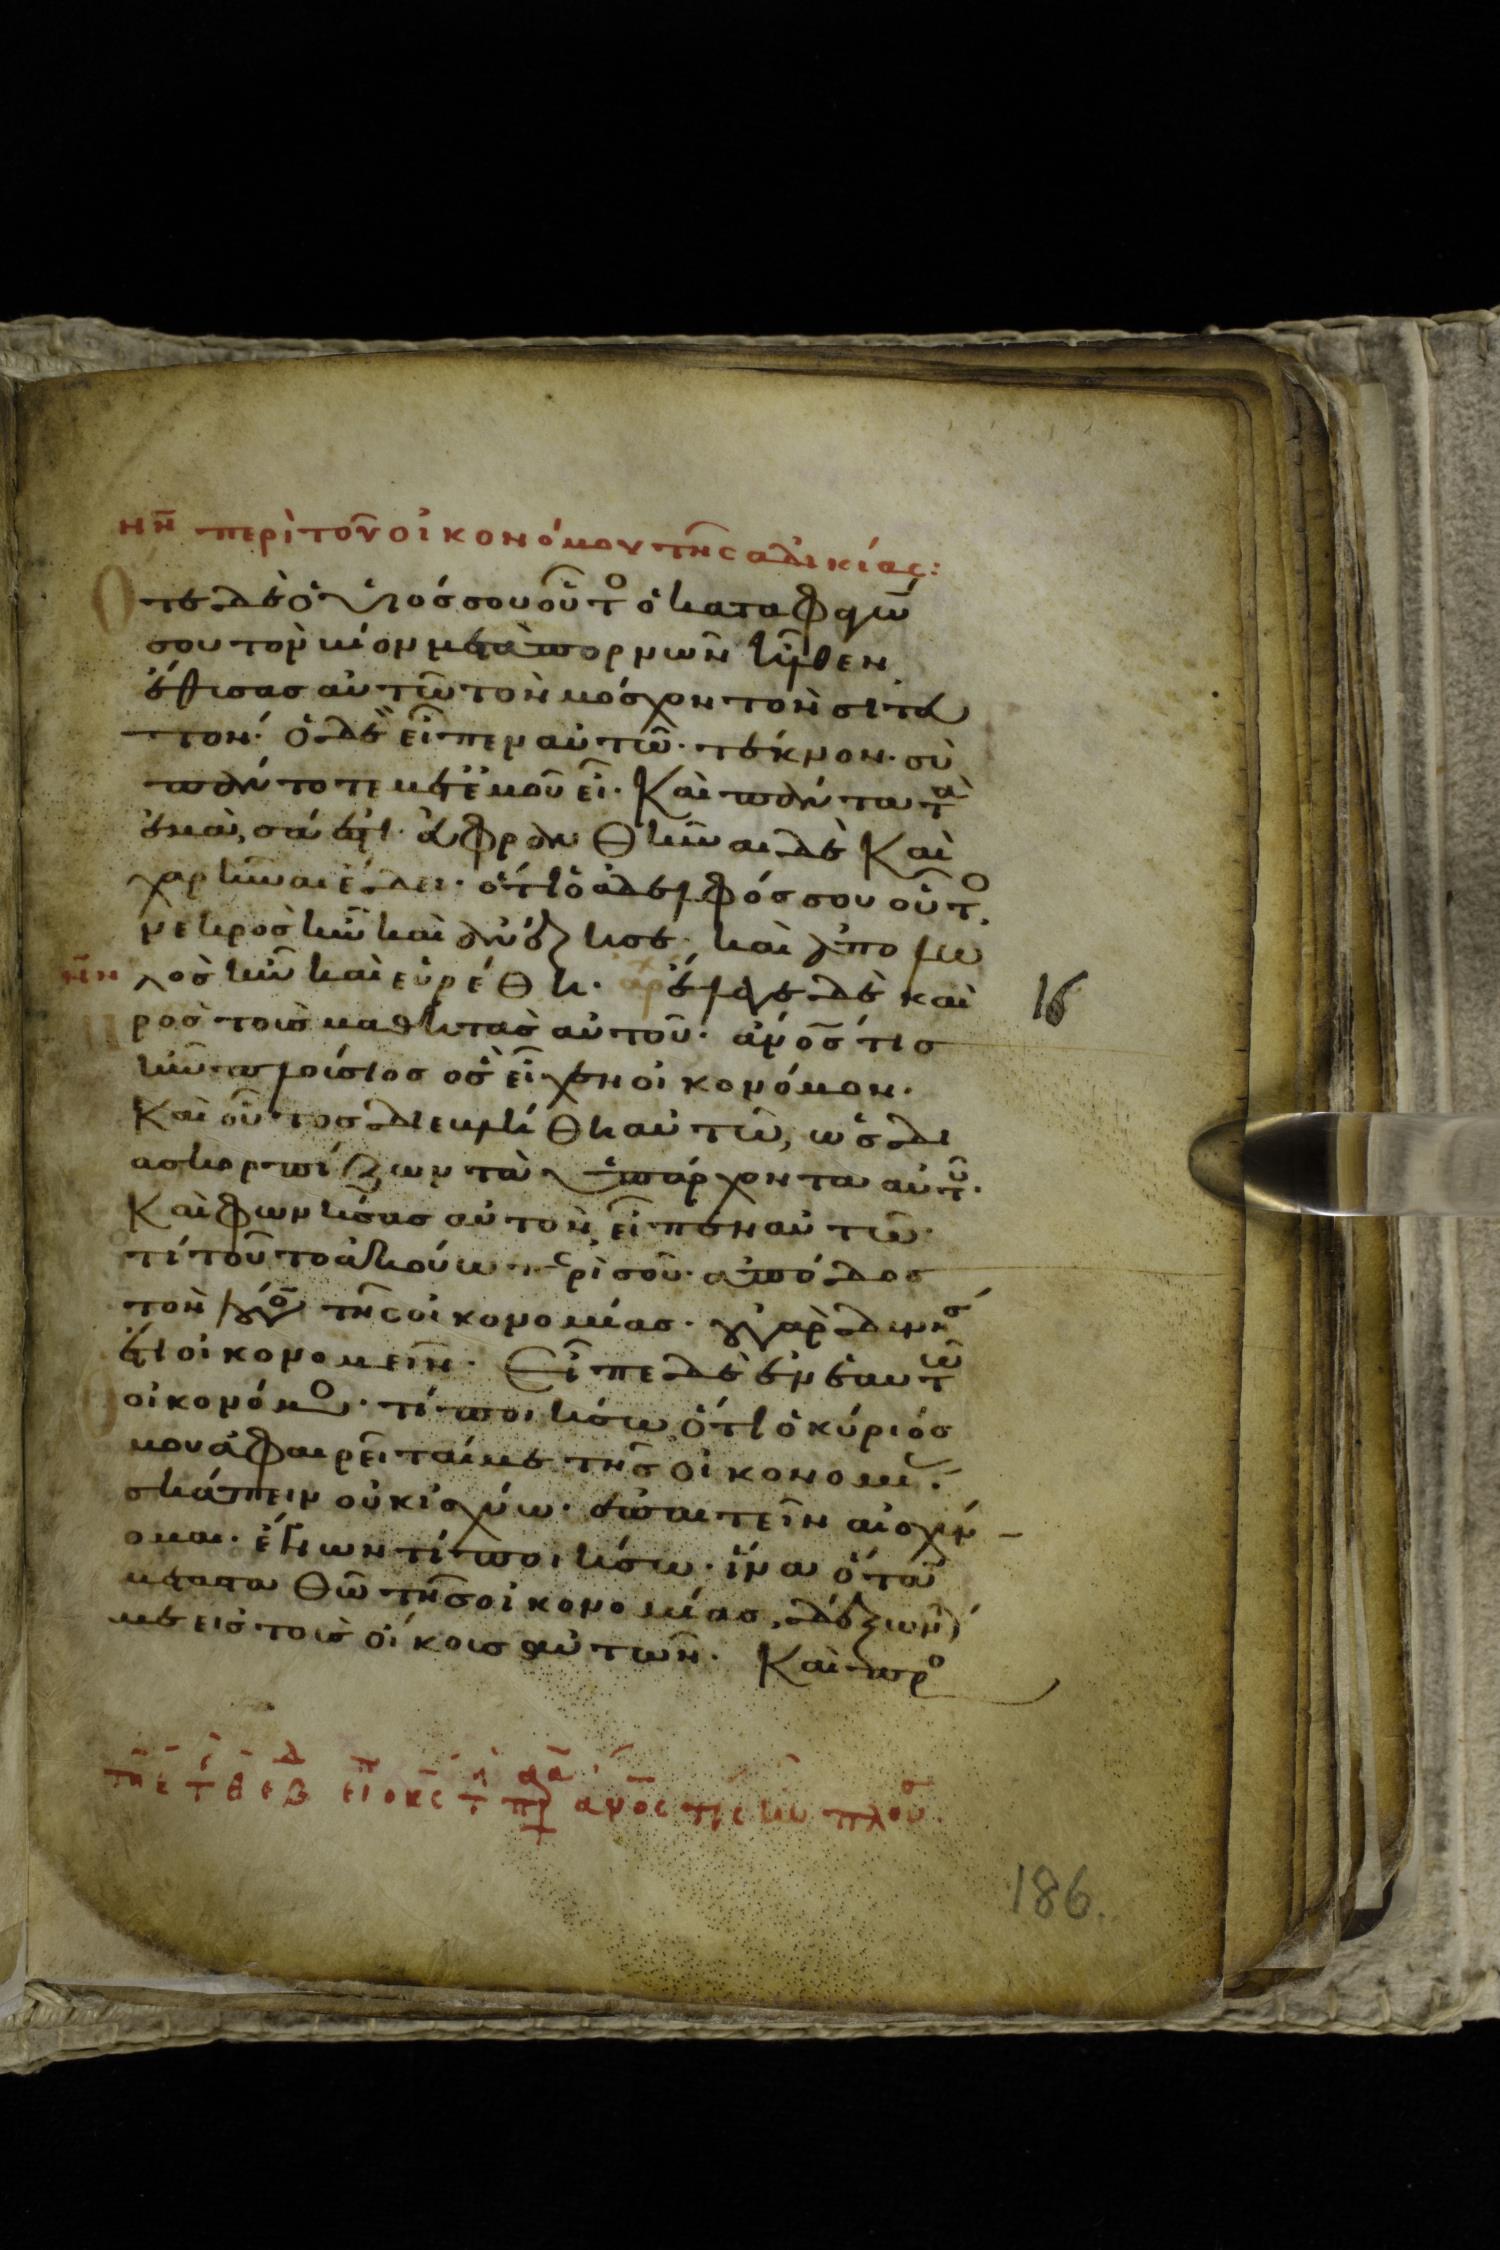 νη περὶ τοῦ οἰκονόμου τῆς ἀδικίας:
Ὅτε δὲ ὁ υἱός σου οὗτο ὁ καταφαγών
σου τὸν βίον μετὰ πορνῶν ἦλθεν
ἔθυσας αὐτῶ τὸν μόσχον τὸν σιτευ
τόν· ὁ δὲ εἶπεν αὐτῶ· τέκνον· σὺ
πάντοτε μετ ἐμοῦ εἶ· Καὶ πάντα τὰ
ἐμὰ, σά ἐστι· εὐφρανθῆναι δὲ Καὶ
χαρῆναι ἔδει· ὅτι ὁ ἀδελφός σου οὗτο
νεκρὸς ἦν καὶ ἀνέζησε· καὶ ἀπολω
λὸς ἦν καὶ εὑρέθη· ἔλεγε δὲ καὶ
πρὸς τοὺς μαθητὰς αὐτοῦ· ἄνος τις
ἦν πλούσιος ὃς εἶχεν οἰκονόμον·
Καὶ οὗτος διεβλήθη αὐτῶ, ὡς δι
ασκορπίζων τὰ ὑπάρχοντα αὐτοῦ·
Καὶ φωνήσας αὐτὸν, εἶπεν αὐτῶ·
τί τοῦτο ἀκούω περὶ σοῦ· ἀπόδος
τὸν λόγον τῆς οἰκονομίας· οὐ γὰρ δυνήσ
ἔτι οἰκονομεῖν· Εἶπε δὲ ἐν ἑαυτῶ
ὁ οἰκονόμο· τί ποιήσω ὅτι ὁ κύριός
μου ἀφαιρεῖται με τῆς οἰκονομί·
σκάπτειν οὐκ ἰσχύω· ἐπαιτεῖν αἰσχύν
ομαι· ἔγνων τί ποιήσω· ἵνα ὅταν
μετασταθῶ τῆς οἰκονομίας, δέξων
με εἰς τοὺς οἴκους αὐτῶν· Καὶ προ
16
186.